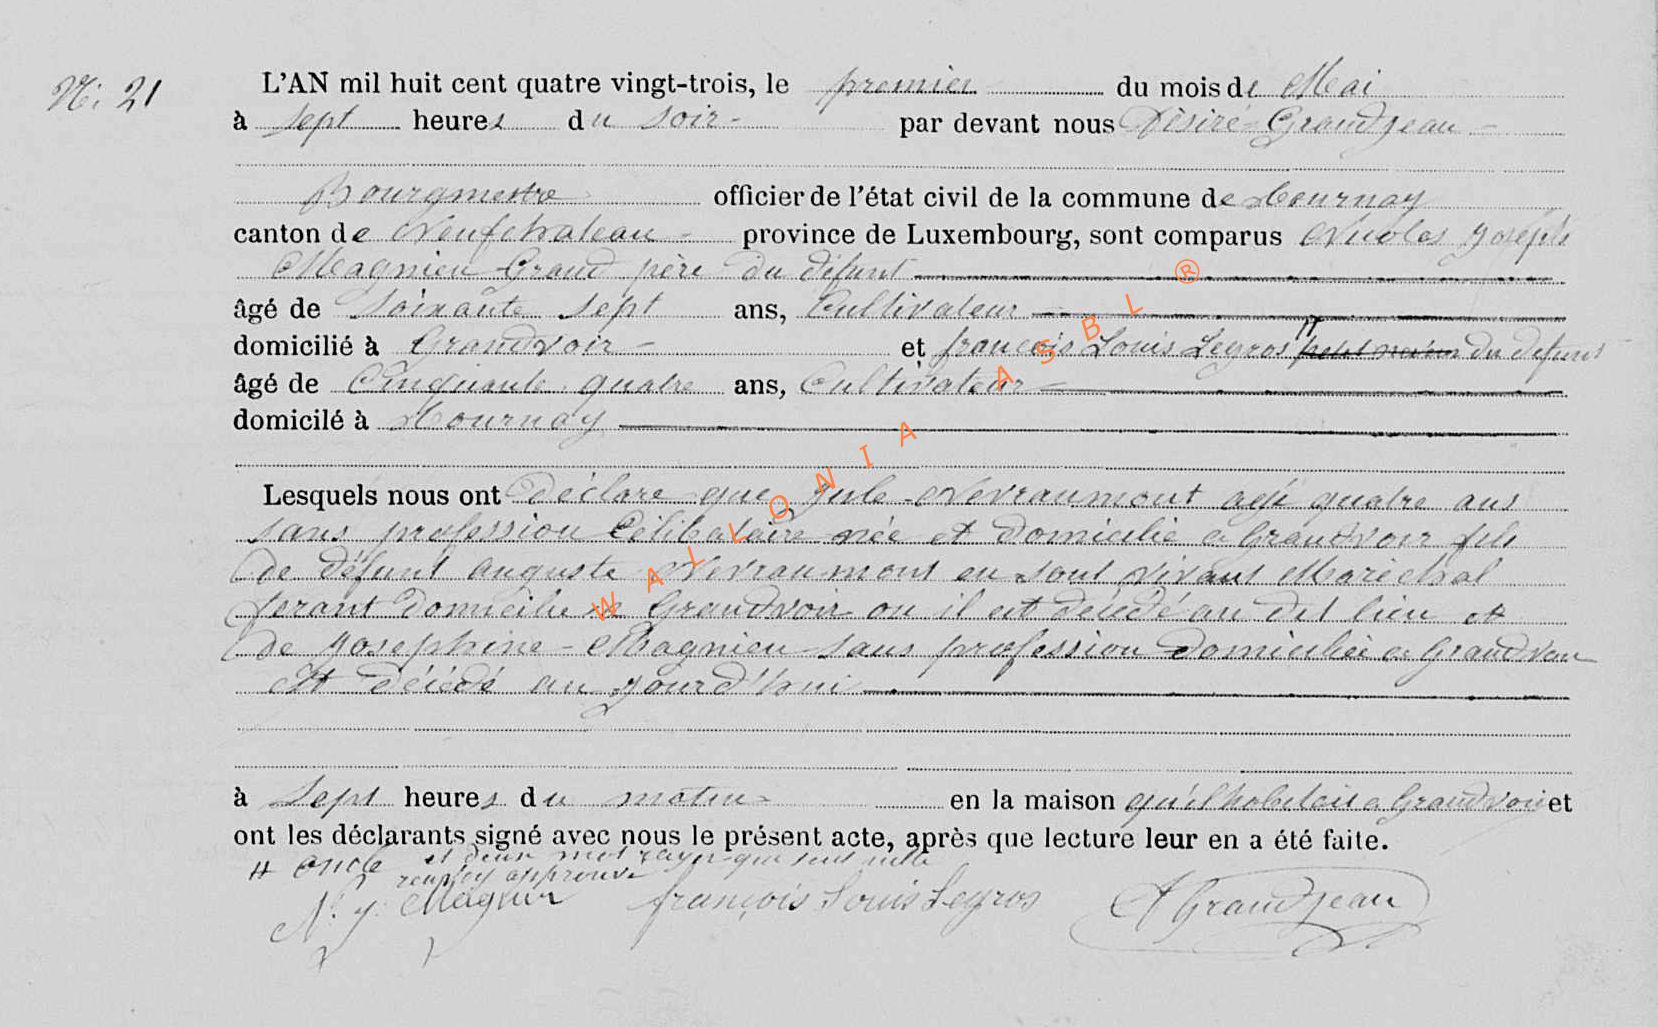 N: 21
L'AN mil huit cent quatre vingt-trois, le premier du mois de Mai
à sept heures du soir par devant nous Désiré Grandjean
Bourgmestre officier de l'état civil de la commune de Tournay
canton de Neufchateau province de Luxembourg, sont comparus Nicolas Joseph
Magnieu Grand père du défunt
âgé de soixante sept ans, Cultivateur
domicilié à Grandvoir et françois Louis Legros du defunt
âgé de Cinquante quatre ans, Cultivateur
domicilé à Tournay
Lesquels nous ont déclaré que Jule Nevraumont agé quatre ans
sans profession Célibataire née et domicilié a Grandvoir fils
de défunt auguste Nevraumont en sont vivant Maréchal
ferant domicilié a Grandvoir ou il est décédé au dit lieu et
de Josephine Magnieu sans profession domiciliée a Grandvoir
est décédé au jourd'hui
à Sept heures du matin en la maison qu'il habitait a Grandvoir et
ont les déclarants signé avec nous le présent acte, après que lecture leur en a été faite.
H oncle et deux mot rayer qui sont nulle
approuvé
N. J. Magnieu françois Louis Legros Grandjean
WALLONIA ASBL ®